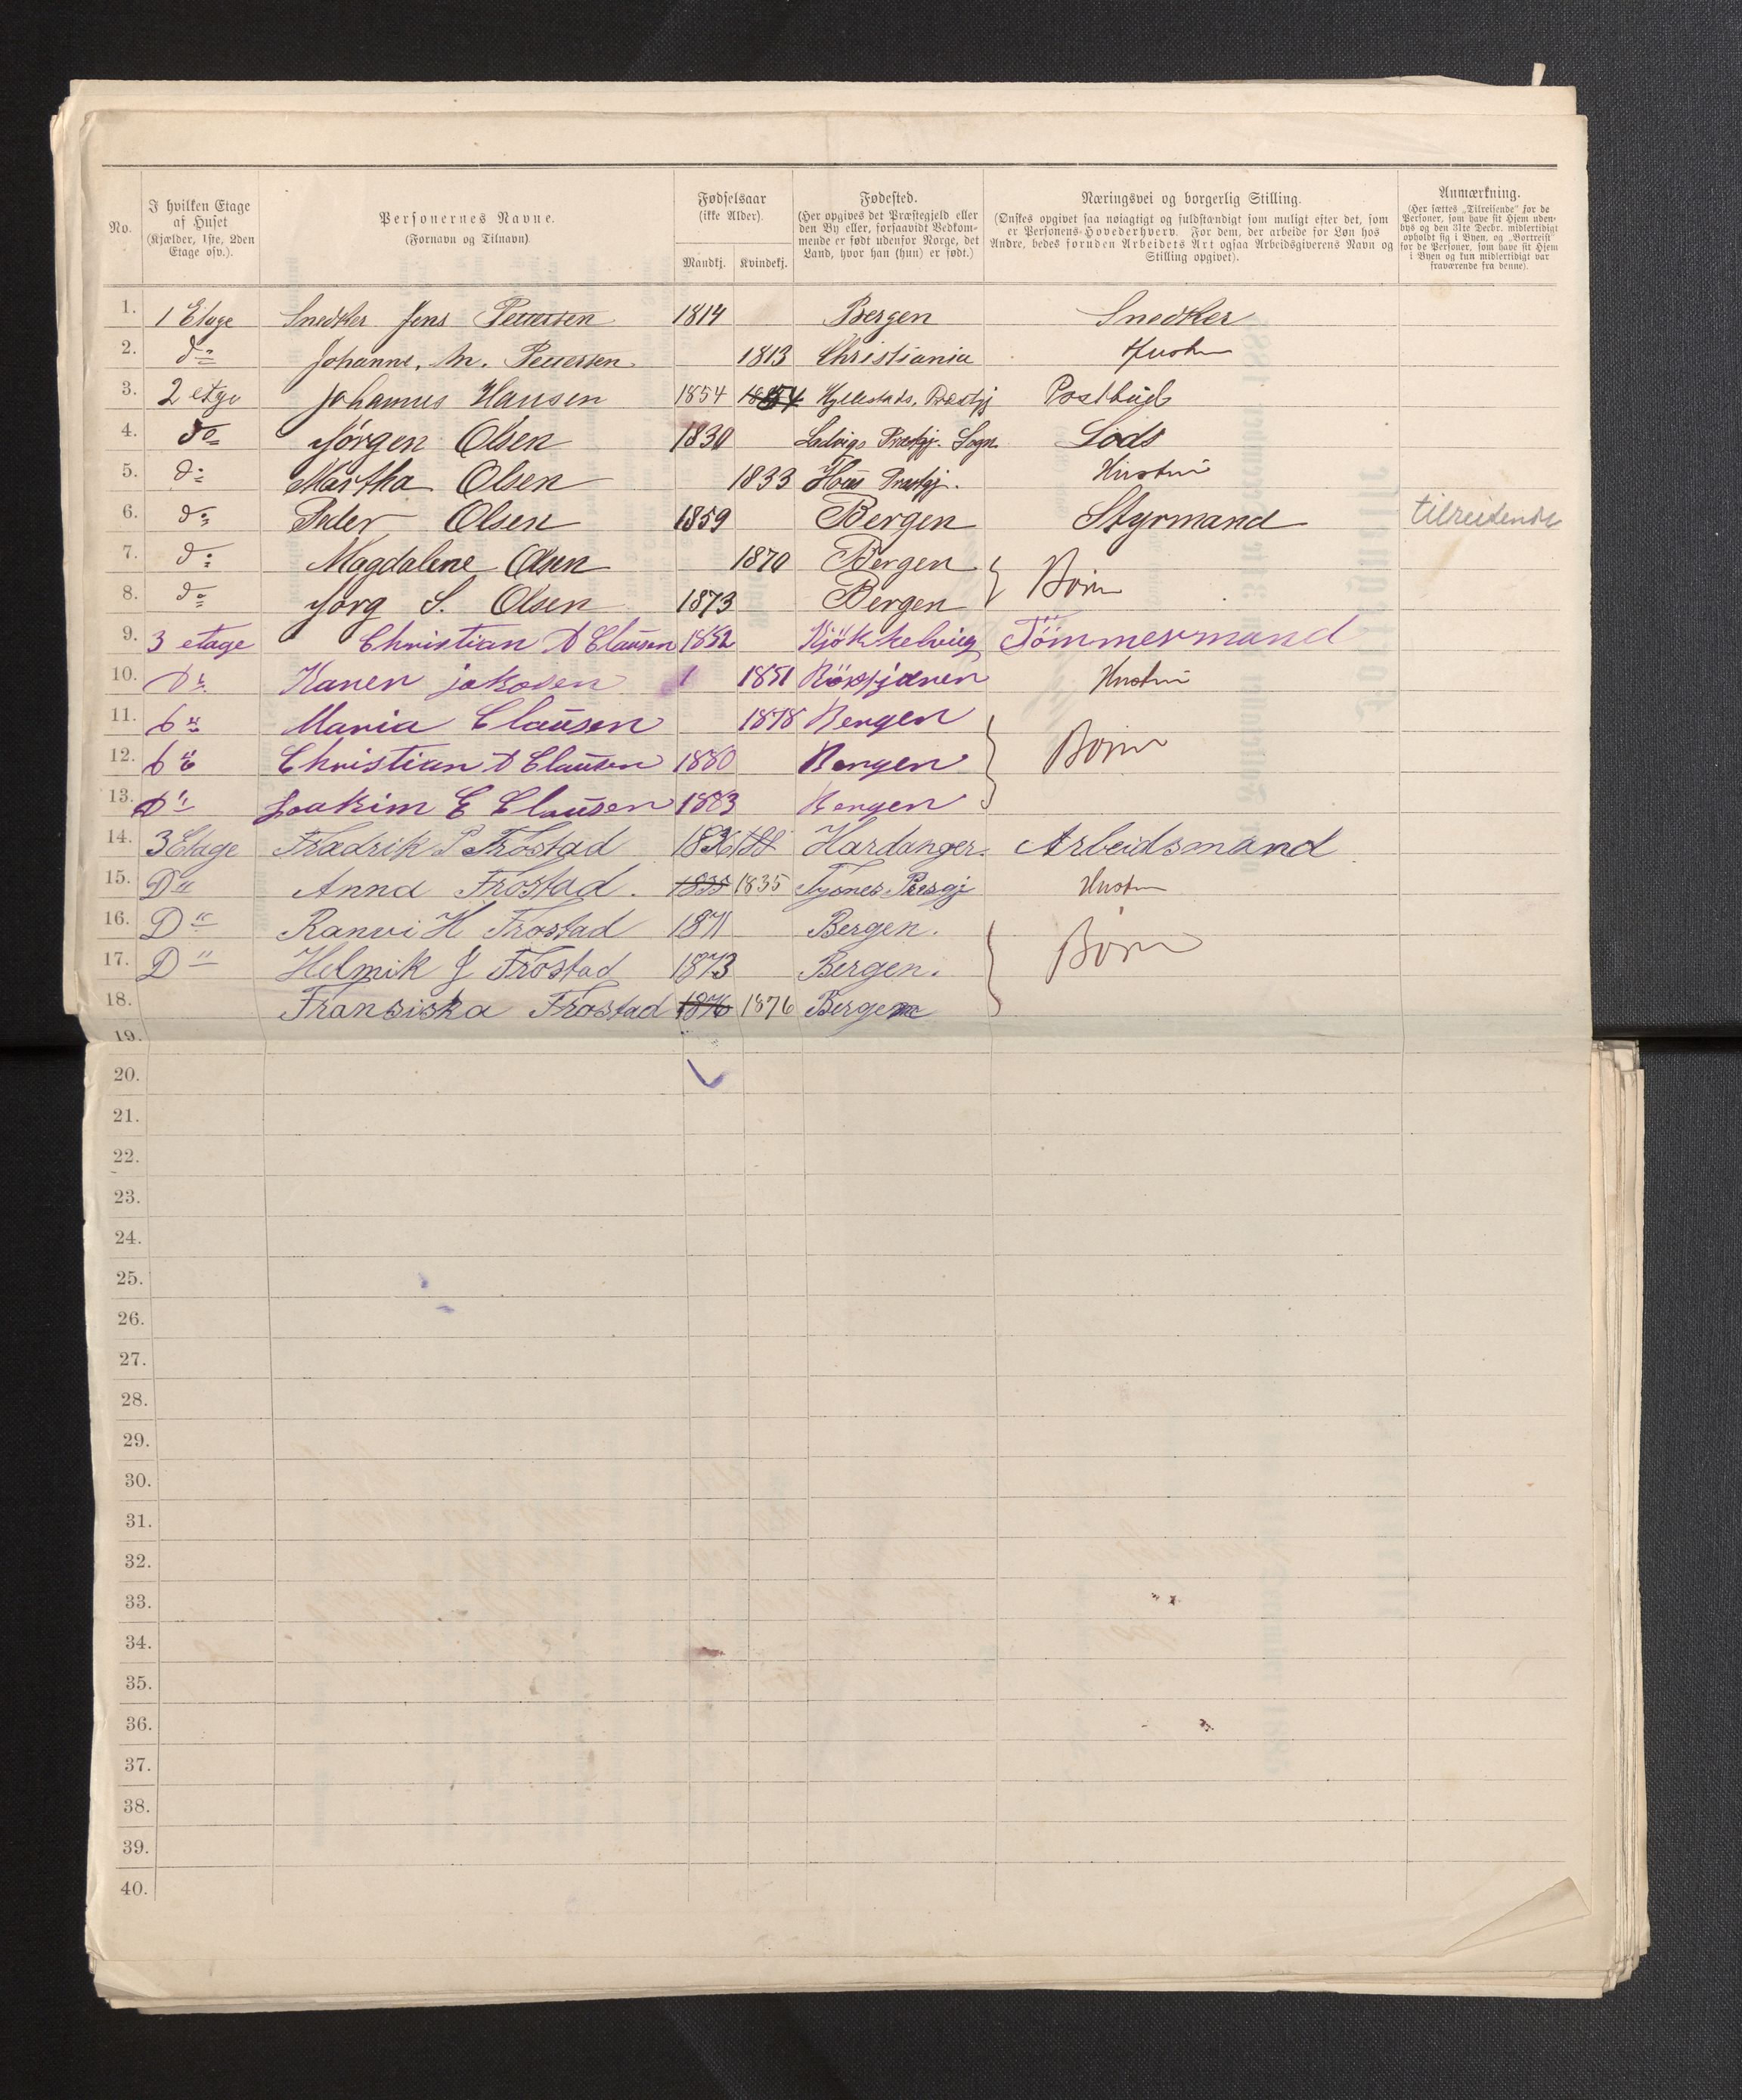 No.
I hvilken Etage af Huset (Kjælder, 1ste, 2den Etage osv.).
Personernes Navne. (Fornavn og Tilnavn)
Fødselsaar (ikke Alder).
Mandkj. Kvindekj.
Fødested. (Her opgives det Præstegjeld eller den By eller, forsaavidt Vedkommende er født udenfor Norge, det Land, hvor han (hun) er født.)
Næringsvei og borgerlig Stilling. (Ønskes opgivet saa nøiagtigt og fuldstændigt som muligt efter det, som er Personens Hovederhverv. For dem, der arbeide for Løn hos Andre, bedes foruden Arbeidets Art ogsaa Arbeidsgiverens Navn og Stilling opgivet).
Anmærkning. (Her sættes „Tilreisende" for de Personer, som have sit Hjem udenbys og den 31te Decbr. midlertidigt opholdt sig i Byen, og „Bortreist" for de Personer, som have sit Hjem i Byen og kun midlertidigt var fraværende fra denne).
1. 1 Etage Snedker Jens Pettersen 1814 Bergen Snedker
2. do Johanne. M. Pettersen 1813 Christiania Hustru
3. 2 etge Johannes Hansen 1854 1854 Hyllestads, Præstgj Postbud
4. do Jørgen Olsen 1830 Ladvigs Præstgj. Sogn Lods
5. do Martha Olsen 1833 Hous Præstgj. Hustru
6. do Peder Olsen 1859 Bergen Styrmand tilreisende
7. do Magdalene Olsen 1870 Bergen
8. do Jørg S. Olsen 1873 Bergen Børn
9. 3 etage Christian D Clausen 1852 Tömmermand
10. Do Karen jakobsen 1 1851 Hustru
11. do Maria Clausen 1878 Bergen
12. do Christian D Clausen 1880 Bergen Børn
13. Do Joakim E Clausen 1883 Bergen
14. 3 Etage Fredrik P Frostad 1836 Hardanger. Arbeidsmand
15. Do Anna Frostad. 1835 1835 Tysnes Presgj Hustru
16. Do Ranvi H Frostad 1871 Bergen.
17. Do Helmik J Frostad 1873 Bergen. Børn
18. Fransiska Frostad 1876 1876 Bergen
19.
20.
21.
22.
23.
24.
25.
26.
27.
28.
29.
30.
31.
32.
33.
34.
35.
36.
37.
38.
39.
40.